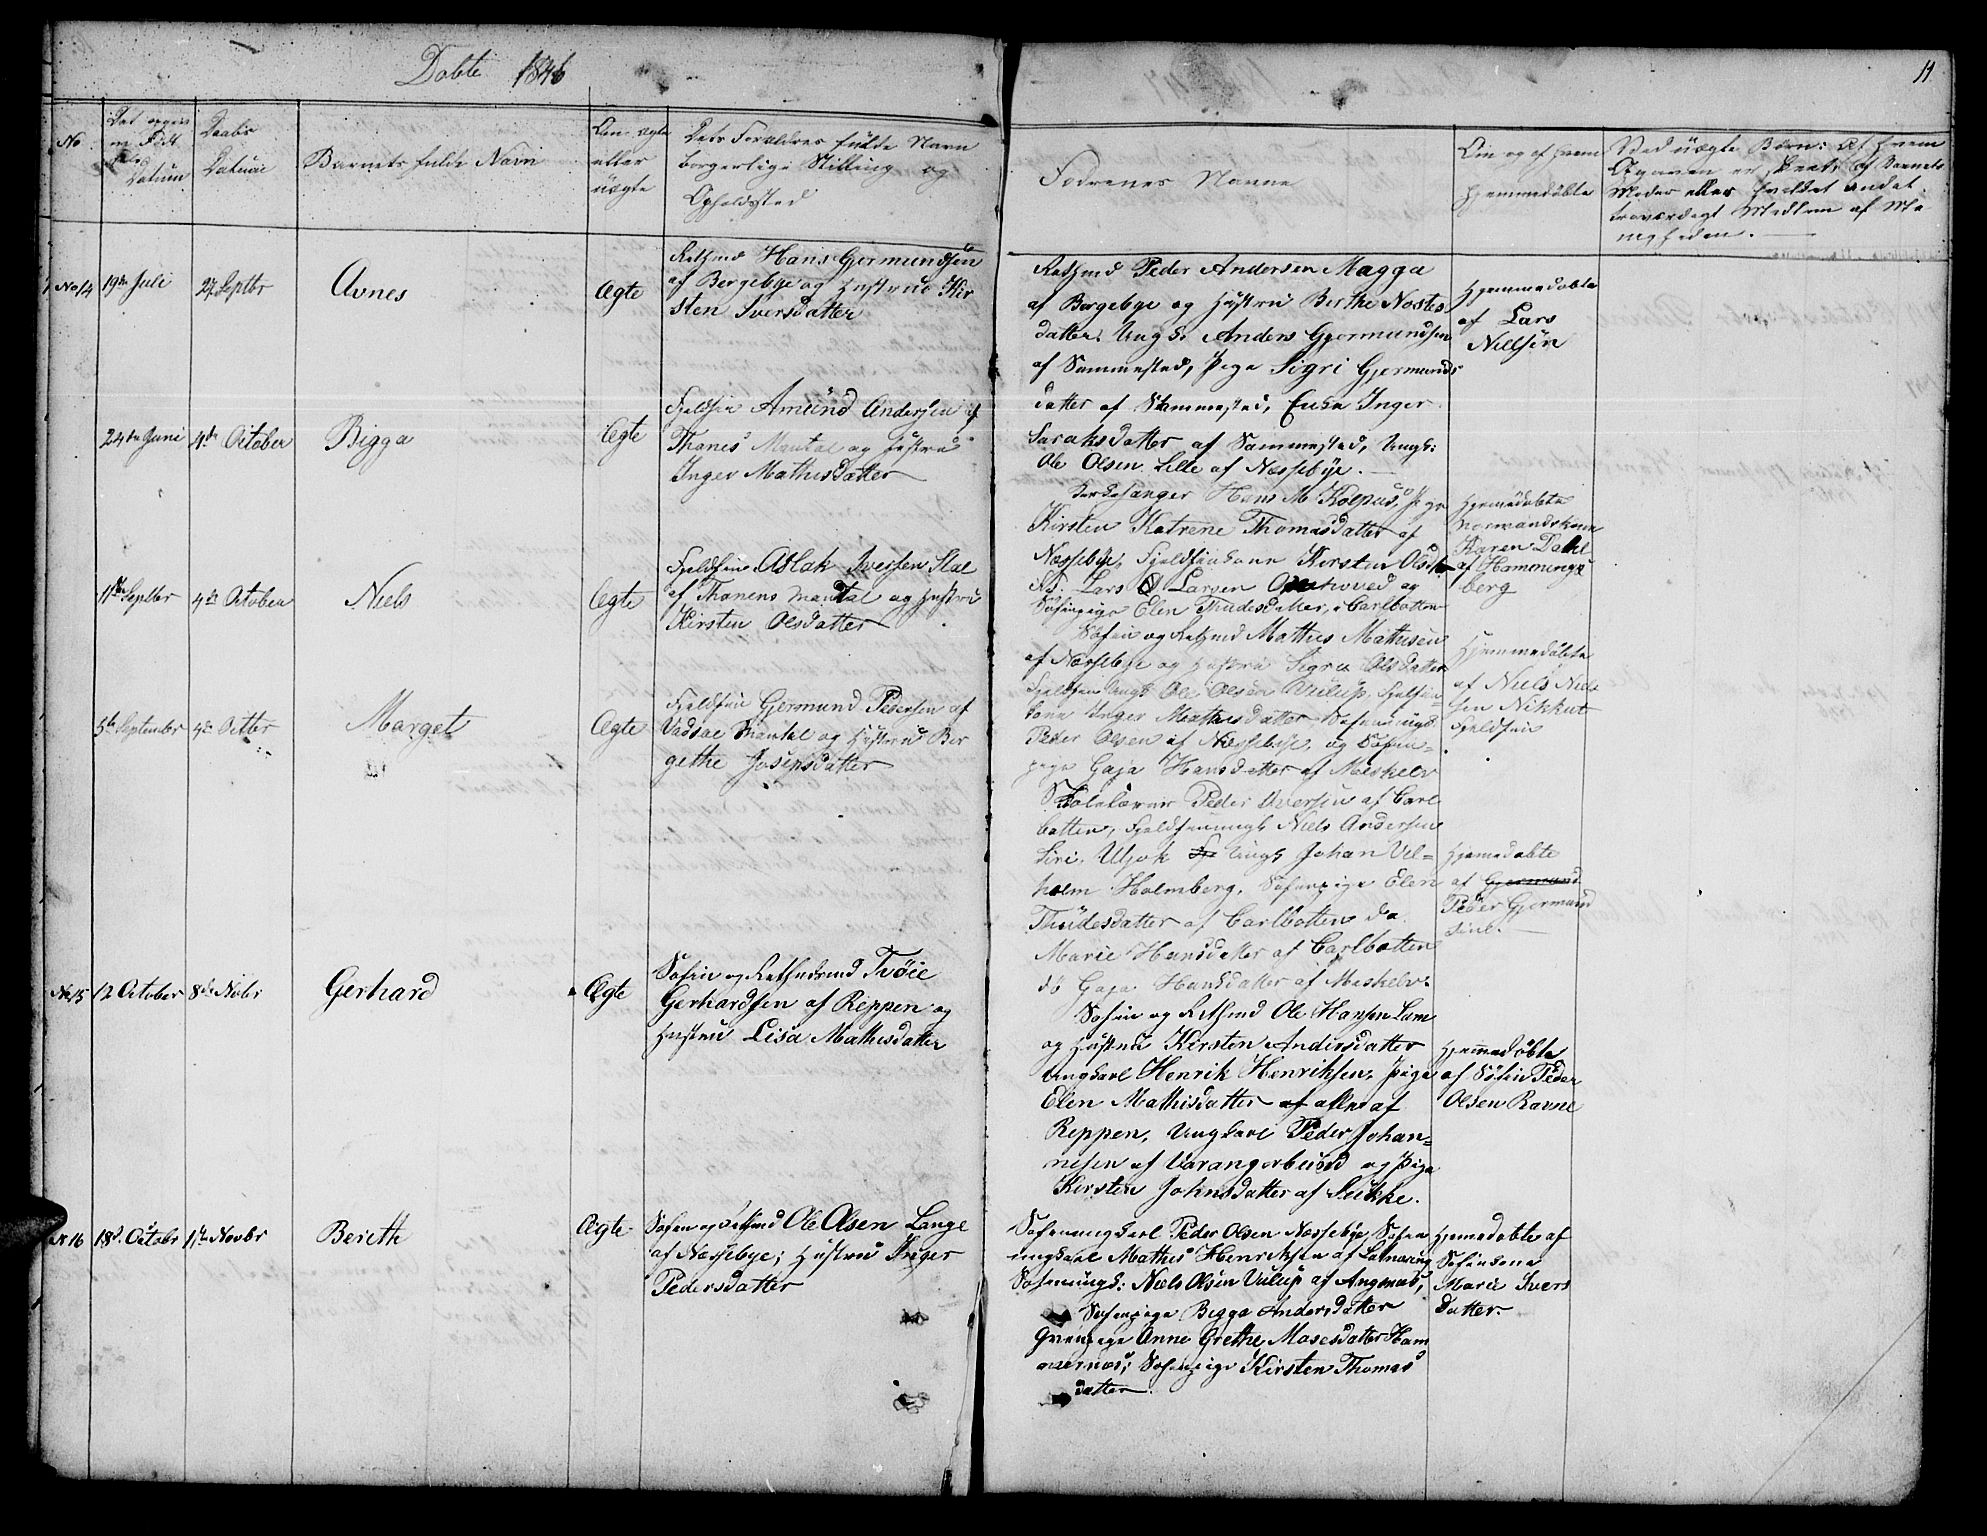 Døbte 1846
11
No
Datum
Daabs
Datum
Barnets fulde Navn
Om ægte
eller
uægte
Dets Forældres fulde Navn
borgerlige Stilling og
Opholdssted
Fadrenes Navne
Om og af hvem
hjemmedøbte
Ved uægte Børn: Af hvem
Moder eller hvilket andet
troværdigt Medlem af Me
nigheden.
No 14
19de Juli
27 Septbr
Avnes
Ægte
Hans Gjermundsen
af Bergebye og Hustrue Kir
sten Iversdatter
Peder Andersen Magga
af Bergebye og Hustru Berthe Nostes
datter. Ungk. Anders Gjermundsen
af Sammested, Pige Sigri Gjermunds
datter af Sammested, Enke Inger
Saraksdatter af Sammested, Ungk:
Ole Olsen Lille af Næssebye.
Hjemmedøbte
af Lars
Nielsen
24de Juni
4de October
Bigga
Ægte
Fjeldfin Amund Andersen af
Thanes Mantal og Hustru
Inger Mathisdatter
Kirkesanger Hans M. Kolpus, Pige
Kirsten Katrene Thomasdatter af
Næssebye, Fjeldfinkone Kirsten Olsdtr
Lars O Larsen og
Søfinpige Elen Thudesdatter, Carlbotten
Hjemmedøbte
Normandskone
Karen Dahl
af Hamminge
berg
11de Septbr
4de October
Niels
Ægte
Fjeldfin Aslak Iversen Stal
af Thanens mantal og Hustru
Kirsten Olsdatter
Søfin og Mathis Mathisen
af Næssebye og Hustru Sigri Olsdatter
Fjeldfin Ungk Ole Olsen Vulup, Fjelfin
kone Inger Mathisdatter Søfinungk
Peder Olsen af Næssebye, og Søfin=
pige Gaja Hansdatter af Meskelv
Hjemmedøbte
af Niels Niel
sen Nikkut
Fjeldfin
5te September
4de Octbr
Marget
Ægte
Fjeldfin Germund Pedersen af
Vadsøe Mantal og Hustru Ber
gethe Josepsdatter
Skolelærer Peder Iversen af Carl
botten, Fjeldfinungk Niels Andersen
Siri, Utjok Ungk Johan Vil=
helm Holmberg, Søfinpige Elen
Thudesdatter af Carlbotten do
Marie Hansdatter af Carlbotten
do Gaja Hansdatter af Meskelv.
Hjemmedøbte
af Gjermund
Peder Gjermund
sen.
No 15
12 October
8de Nobr
Gerhard
Ægte
Søfin og Tvøie
Gerhardsen af Reppen og
Hustrue Lisa Mathisdatter
Søfin og Ole Hansen Lam
og Hustrue Kirsten Andersdatter
Ungkarl Henrik Henriksen, Pige
Elen Mathisdatter af alle af
Reppen, Ungkarl Peder Johan=
nesen af Varangerbund og Pige
Kirsten Johnsdatter af Seikke.
Hjemmedøbte
af Søfin Peder
Olsen Ravne
N 16
18d. Octobr
1ste Novbr
Bereth
Ægte
Søfin og Ole Olsen Lange
af Næssebye; Hustrue Inger
Pedersdatter
Søfinungkarl Peder Olsen Næssebye, Søfin
ungkarl Mathis Henriksen af Latnaring
Søfinungk: Niels Olsen Vulup af Angsnæs,
Søfinpige Bigga Andersdatter
Anne Grethe Mosesdatter Ham
mernæs; Søfinpige Kirsten Thomas
datter.
Hjemmedøbte af
Søfinkone
Marie Ivers
datter.